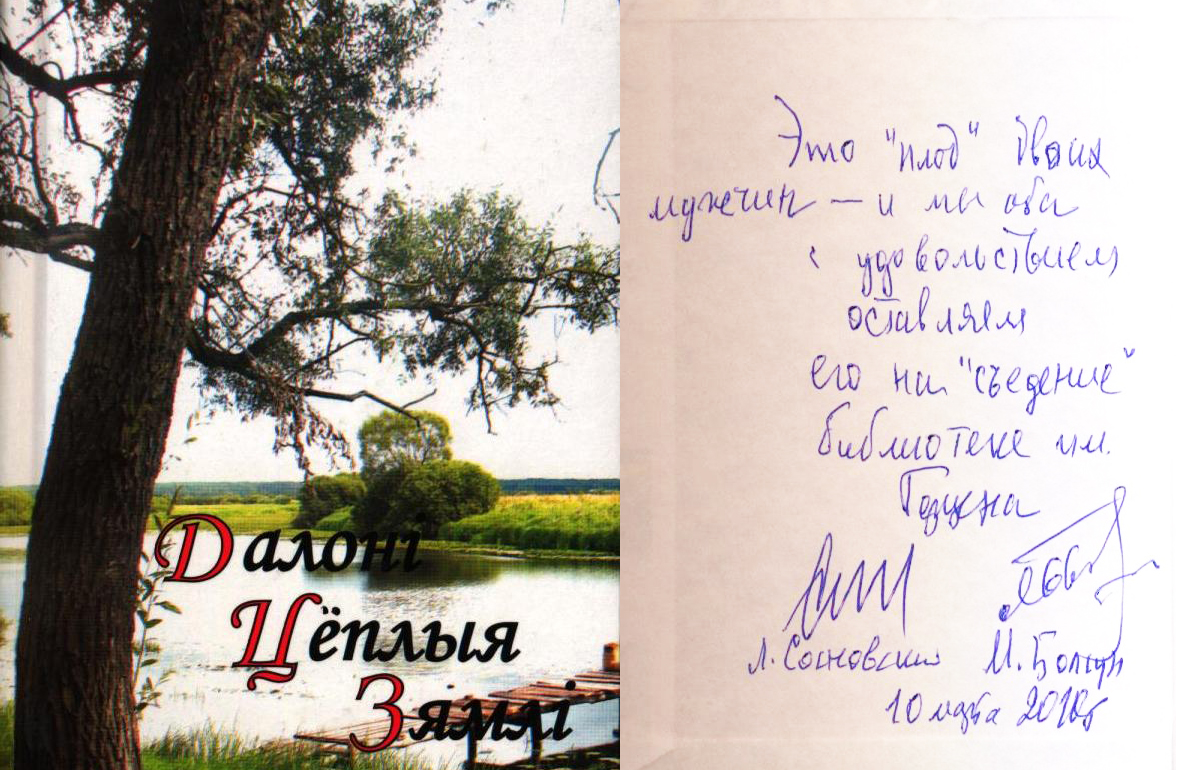 Далоні
Цёплыя
Зямлі
Это "плод" двоих
мужчин — и мы оба
с удовольствием
оставляем
его на "съедение"
библиотеке им.
Л. Сосновский М.
10 марта 2010г